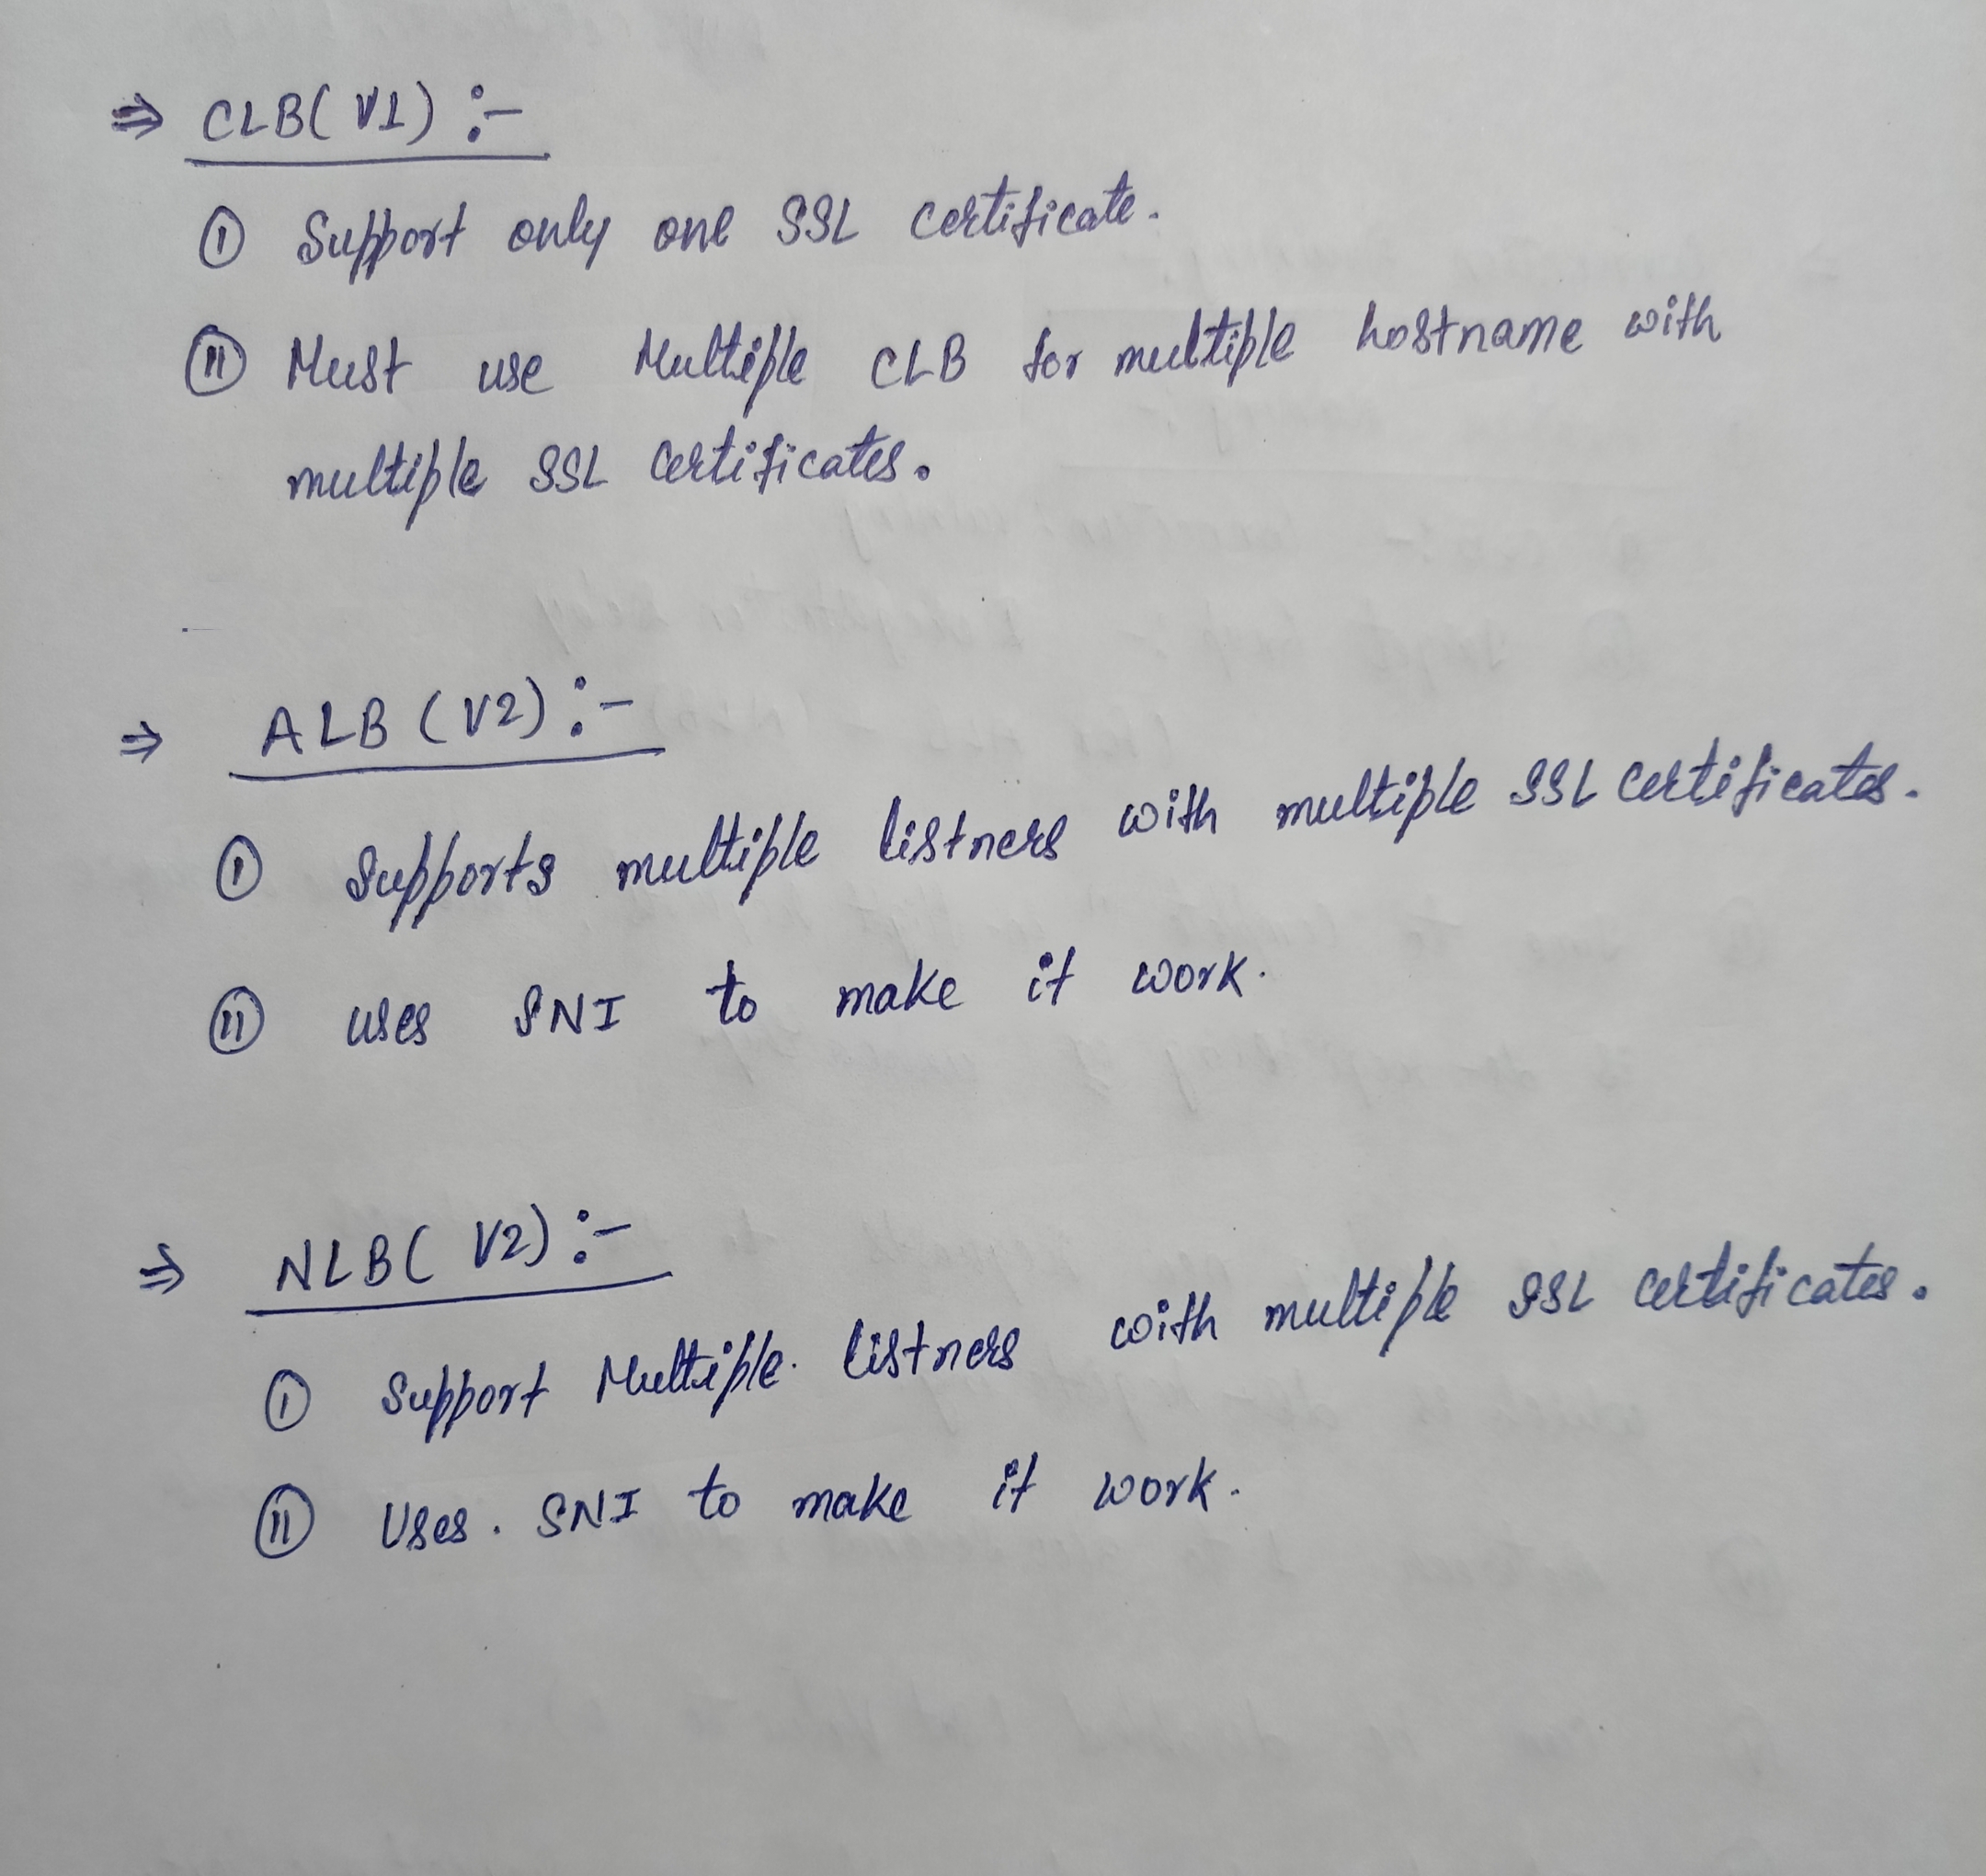 ⇒ CLB(V1) :-
(i) Support only one SSL certificate.
(ii) Must use Multiple CLB for multiple hostname with
multiple SSL certificates.
⇒ ALB (V2) :-
(i) Supports multiple listners with multiple SSL certificates.
(ii) uses SNI to make it work.
⇒ NLB( V2) :-
(i) Support Multiple. listners with multiple SSL certificates.
(ii) Uses. SNI to make it work.